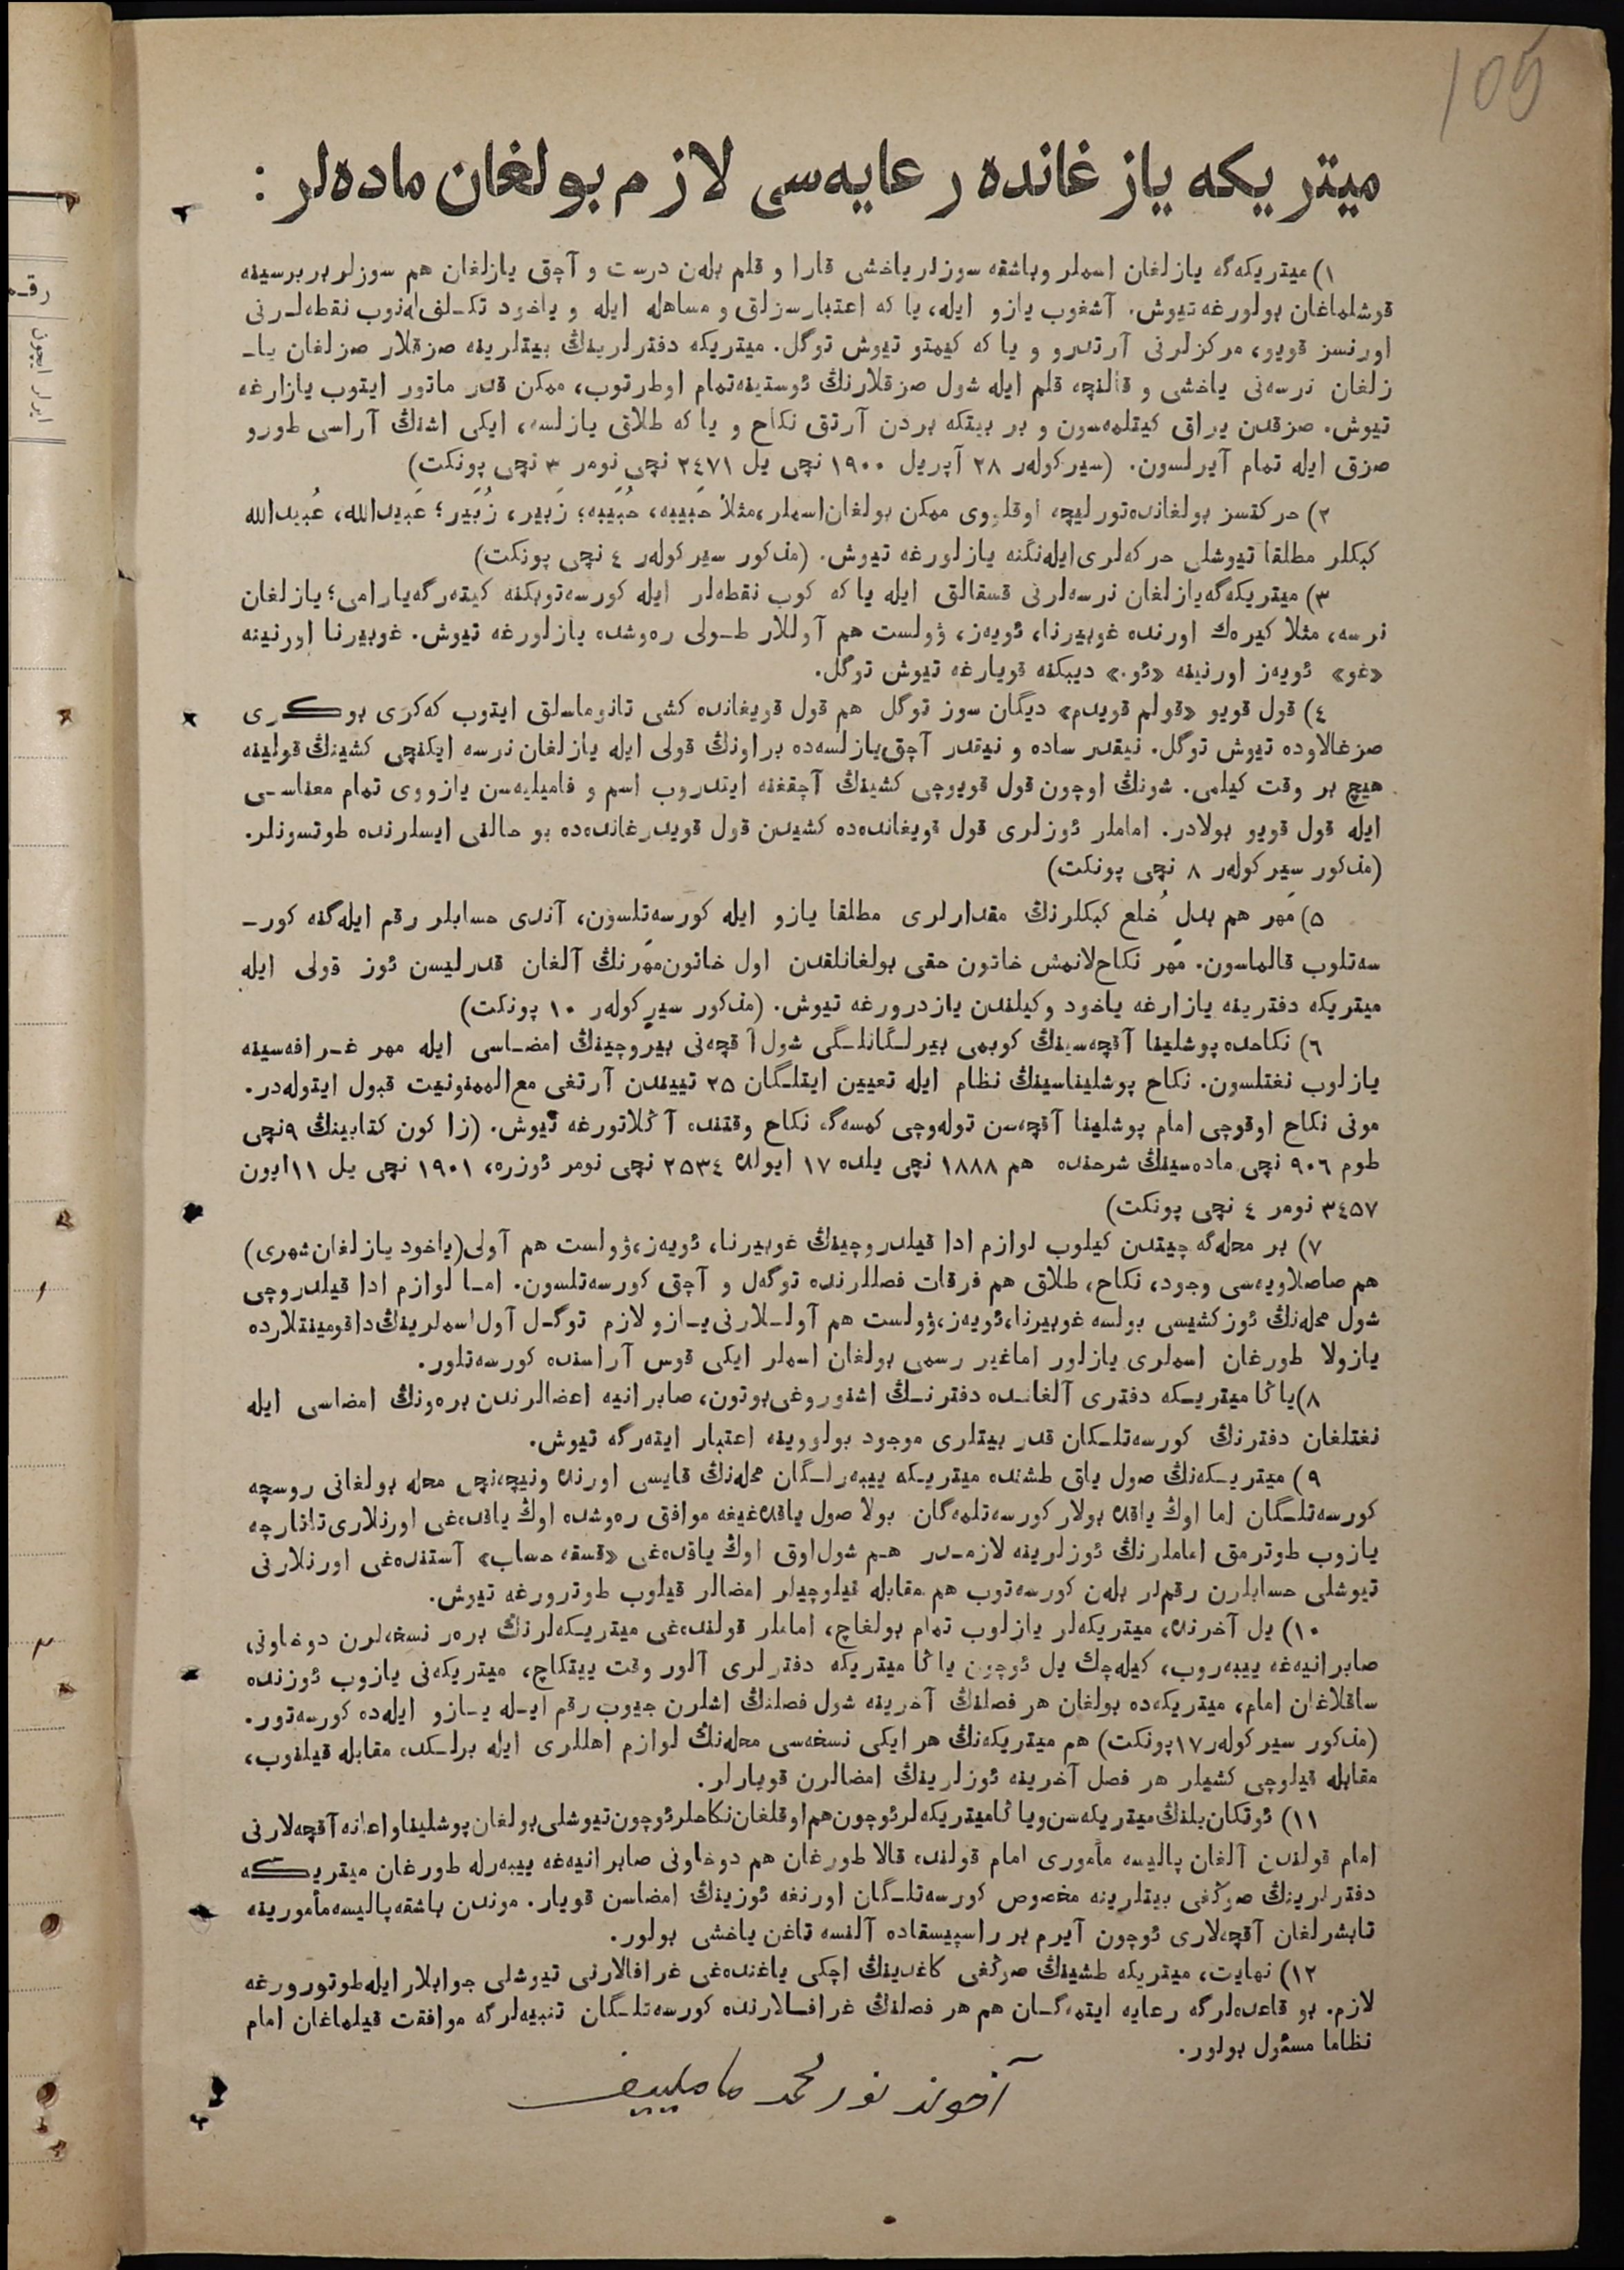 105
میتریکه یازغانده رعایه‌سی لازم بولغان ماده‌لر :
۱) میتریکه‌گه یازلغان اسملر وباشقه سوزلر یاخشی قارا و قلم بلەن درست و آچق یازلغان هم سوزلر بر برسینه
قوشلماغان بولورغه تیوش. آشغوب یازو ایله، یا که اعتبارسزلق و مساهله ایله و یاخود تکـلف‌له‌نوب نقطه‌لـرنی
اورنسز قویو، مرکزلرنی آرتدرو و یا که کیمتو تیوش توگل. میتریکه دفترلرینڭ بیتلرینه صزقلار صزلغان یاـ
زلغان نرسه‌نی یاخشی و قالنچه قلم ایله شول صزقلارنڭ ئوستینه تمام اوطرتوب، ممکن قدر ماتور ایتوب یازارغه
تیوش. صزقدن یراق کیتلمه‌سون و بر بیتکه بردن آرتق نکاح و یا که طلاق یازلسه، ایکی اشنڭ آراسی طورو
صزق ایله تمام آیرلسون. (سیرکولەر ۲۸ آپریل ۱۹۰۰ نچی یل ۲٤۷۱ نچی نومر ۳ نچی پونکت)
۲) حرکتسز بولغانده تورلیچه اوقلووی ممکن بولغان اسملر، مثلا حَبیبه، حُبَیبه؛ زَبیر، زُبَیر؛ عَبیدالله، عُبیدالله
کبکلر مطلقا تیوشلی حرکه‌لری ایله‌نگنه یازلورغه تیوش. (مذکور سیرکولەر ٤ نچی پونکت)
۳) میتریکه‌گه یازلغان نرسه‌لرنی قسقالق ایله یا که کوب نقطه‌لر ایله کورسه‌توبکنه کیتەرگه یارامی؛ یازلغان
نرسه، مثلا کیرەك اورنده غوبیرنا، ئویەز، ۋولست هم آوللار طـولی رەوشده یازلورغه تیوش. غوبیرنا اورنینه
«غو» ئویەز اورنینه «ئو.» دیبکنه قویارغه تیوش توگل.
٤) قول قویو «قولم قویدم» دیگان سوز توگل هم قول قویغانده کشی تانوماسلق ایتوب کەکری بوکـری
صزغالاوده تیوش توگل. نیقدر ساده و نیقدر آچق یازلسه‌ده براونڭ قولی ایله یازلغان نرسه ایکنچی کشینڭ قولینه
هیچ بر وقت کیلمی. شونڭ اوچون قول قویوچی کشینڭ آچقغنه ایتدروب اسم و فامیلیه‌سن یازووی تمام معناسـی
ایله قول قویو بولادر. اماملر ئوزلری قول قویغانده‌ده کشیدن قول قویدرغانده‌ده بو حالنی ایسلرنده طوتسونلر.
(مذکور سیرکولەر ۸ نچی پونکت)
۵) مَهر هم بدل خُلع کبکلرنڭ مقدارلری مطلقا یازو ایله کورسه‌تلسون، آندی حسابلر رقم ایله‌گنه کورـ
سه‌تلوب قالماسون. مَهر نکاح‌لانمش خاتون حقی بولغانلقدن اول خاتون مَهرنڭ آلغان قدرلیسن ئوز قولی ایله
میتریکه دفترینه یازارغه یاخود وکیلندن یازدرورغه تیوش. (مذکور سیرکولەر ۱۰ پونکت)
٦) نکاحده پوشلینا آقچه‌سینڭ کوبمی بیرلـگانلـگی شول آقچه‌نی بیروچینڭ امضـاسی ایله مهر غـرافه‌سینه
یازلوب نغتلسون. نکاح پوشلیناسینڭ نظام ایله تعیین ایتلـگان ۲۵ تییندن آرتغی مع‌الممنونیت قبول ایتولەدر.
مونی نکاح اوقوچی امام پوشلینا آقچه‌سن توله‌وچی کمسه‌گه نکاح وقتنده آڭلاتورغه تیوش. (زاکون کتابینڭ ۹نچی
طوم ۹۰٦ نچی ماده‌سینڭ شرحنده هم ۱۸۸۸ نچی یلده ۱۷ ایولده ۲۵۳٤ نچی نومر ئوزره، ۱۹۰۱ نچی یل ۱۱ایون
۳٤۵۷ نومر ٤ نچی پونکت)
۷) بر محله‌گه چیتدن کیلوب لوازم ادا قیلدروچینڭ غوبیرنا، ئویەز، ۋولست هم آولی (یاخود یازلغان شهری)
هم صاصلاویه‌سی وجود، نکاح، طلاق هم فرقات فصللرنده توگەل و آچق کورسه‌تلسون. امـا لوازم ادا قیلدروچی
شول محله‌نڭ ئوز کشیسی بولسه غوبیرنا، ئویەز، ۋولست هم آولـلارنی یـازو لازم توگـل آول اسملرینڭ داقومینتلارده
یازولا طورغان اسملری یازلور اماغیر رسمی بولغان اسملر ایکی قوس آراسنده کورسه‌تلور.
۸) یاڭا میتریـکه دفتری آلغانـده دفترنـڭ اشنوروغی بوتون، صابرانیه اعضالرندن برەونڭ امضاسی ایله
نغتلغان دفترنڭ کورسه‌تلـکان قدر بیتلری موجود بولووینه اعتبار ایتەرگه تیوش.
۹) میتریـکه‌نڭ صول یاق طشنده میتریـکه ییبەرلـگان محله‌نڭ قایسی اورنده ونیچه‌نچی محله بولغانی روسچه
کورسه‌تلـگان اما اوڭ یاقده بولار کورسه‌تلمه‌گان بولا صول یاقده‌غیغه موافق رەوشده اوڭ یاقده‌غی اورنلاری تاتارچه
یازوب طوترمق اماملرنڭ ئوزلرینه لازمـدر هـم شول‌اوق اوڭ یاقده‌غی «قسقه حساب» آستنده‌غی اورنلارنی
تیوشلی حسابلرن رقم‌لر بلەن کورسه‌توب هم مقابله قیلوچیلر امضالر قیلوب طوترورغه تیوش.
۱۰) یل آخرنده، میتریکه‌لر یازلوب تمام بولغاچ، اماملر قولنده‌غی میتریـکه‌لرنڭ برەر نسخه‌لرن دوخاونی
صابرانیه‌غه ییبەروب، کیله‌چك یل ئوچون یاڭا میتریکه دفترلری آلور وقت ییتکاچ، میتریکه‌نی یازوب ئوزنده
ساقلاغان امام، میتریکه‌ده بولغان هر فصلنڭ آخرینه شول فصلنڭ اشلرن جیوب رقم ایـله یـازو ایله‌ده کورسه‌تور.
(مذکور سیرکولەر ۱۷پونکت) هم میتریکه‌نڭ هر ایکی نسخه‌سی محله‌نڭ لوازم اهللری ایله برلـکده مقابله قیلنوب،
مقابله قیلوچی کشیلر هر فصل آخرینه ئوزلرینڭ امضالرن قویارلر.
۱۱) ئوتکان یلنڭ میتریکه‌سن ویاڭا میتریکه‌لر ئوچون هم اوقلغان نکاحلر ئوچون تیوشلی بولغان پوشلینا و اعانه آقچه‌لارنی
امام قولندن آلغان پالیسه مأموری امام قولنده قالا طورغان هم دوخاونی صابرانیه‌غه ییبەرله طورغان میتریـکه
دفترلرینڭ صوڭغی بیتلرینه مخصوص کورسه‌تلـگان اورنغه ئوزینڭ امضاسن قویار. موندن باشقه پالیسه مأمورینه
تابشرلغان آقچه‌لاری ئوچون آیرم بر راسپیسقاده آلنسه تاغن یاخشی بولور.
۱۲) نهایت، میتریکه طشینڭ صوڭغی کاغدینڭ اچکی یاغنده‌غی غرافالارنی تیوشلی جوابلار ایله طوتورورغه
لازم. بو قاعده‌لرگه رعایه ایتمه‌گـان هم هر فصلنڭ غرافـالارنده کورسه‌تلـگان تنبیه‌لرگه موافقت قیلماغان امام
نظاما مسئول بولور.
آخوند نور محمد ماملییف